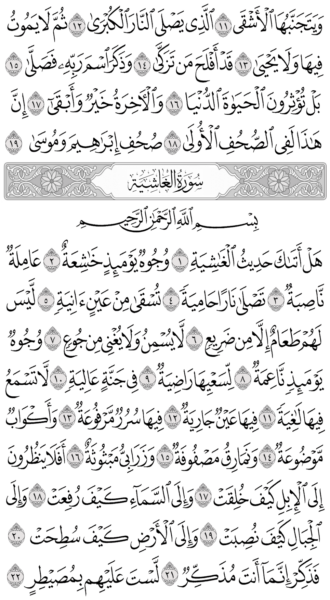 وَيَتَجَنَّبُهَا ٱلۡأَشۡقَى ١١ ٱلَّذِي يَصۡلَى ٱلنَّارَ ٱلۡكُبۡرَىٰ ١٢ ثُمَّ لَا يَمُوتُ
فِيهَا وَلَا يَحۡيَىٰ ١٣ قَدۡ أَفۡلَحَ مَن تَزَكَّىٰ ١٤ وَذَكَرَ ٱسۡمَ رَبِّهِۦ فَصَلَّىٰ ١٥
بَلۡ تُؤۡثِرُونَ ٱلۡحَيَوٰةَ ٱلدُّنۡيَا ١٦ وَٱلۡأٓخِرَةُ خَيۡرٞ وَأَبۡقَىٰٓ ١٧ إِنَّ
هَٰذَا لَفِي ٱلصُّحُفِ ٱلۡأُولَىٰ ١٨ صُحُفِ إِبۡرَٰهِيمَ وَمُوسَىٰ ١٩
سُورَةُ ٱلۡغَاشِيَةِ
بِسۡمِ ٱللَّهِ ٱلرَّحۡمَٰنِ ٱلرَّحِيمِ
هَلۡ أَتَىٰكَ حَدِيثُ ٱلۡغَٰشِيَةِ ١ وُجُوهٞ يَوۡمَئِذٍ خَٰشِعَةٌ ٢ عَامِلَةٞ
نَّاصِبَةٞ ٣ تَصۡلَىٰ نَارًا حَامِيَةٗ ٤ تُسۡقَىٰ مِنۡ عَيۡنٍ ءَانِيَةٖ ٥ لَّيۡسَ
لَهُمۡ طَعَامٌ إِلَّا مِن ضَرِيعٖ ٦ لَّا يُسۡمِنُ وَلَا يُغۡنِي مِن جُوعٖ ٧ وُجُوهٞ
يَوۡمَئِذٖ نَّاعِمَةٞ ٨ لِّسَعۡيِهَا رَاضِيَةٞ ٩ فِي جَنَّةٍ عَالِيَةٖ ١٠ لَّا تَسۡمَعُ
فِيهَا لَٰغِيَةٗ ١١ فِيهَا عَيۡنٞ جَارِيَةٞ ١٢ فِيهَا سُرُرٞ مَّرۡفُوعَةٞ ١٣ وَأَكۡوَابٞ
مَّوۡضُوعَةٞ ١٤ وَنَمَارِقُ مَصۡفُوفَةٞ ١٥ وَزَرَابِيُّ مَبۡثُوثَةٌ ١٦ أَفَلَا يَنظُرُونَ
إِلَى ٱلۡإِبِلِ كَيۡفَ خُلِقَتۡ ١٧ وَإِلَى ٱلسَّمَآءِ كَيۡفَ رُفِعَتۡ ١٨ وَإِلَى
ٱلۡجِبَالِ كَيۡفَ نُصِبَتۡ ١٩ وَإِلَى ٱلۡأَرۡضِ كَيۡفَ سُطِحَتۡ ٢٠
فَذَكِّرۡ إِنَّمَآ أَنتَ مُذَكِّرٞ ٢١ لَّسۡتَ عَلَيۡهِم بِمُصَيۡطِرٍ ٢٢